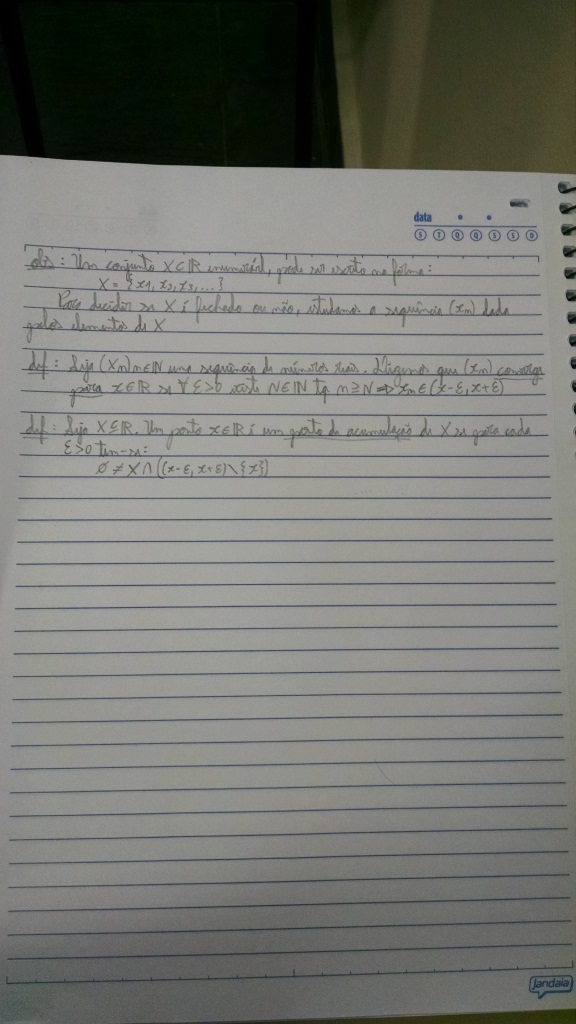 data
S T Q Q S S D
obs: Um conjunto X⊂ℝ enumerável, pode ser escrito na forma:
X = {x1, x2, x3, ...}
Para decidir se X é fechado ou não, estudamos a sequência (xn) dada
pelos elementos de X
def: Seja (Xn)n∈ℕ uma sequência de números reais. Dizemos que (xn) converge
para x∈ℝ se ∀ ε>0 existe N∈ℕ tq n≥N ⇒ xn∈(x-ε, x+ε)
def: Seja X⊆ℝ. Um ponto x∈ℝ é um ponto de acumulação de X se para cada
ε>0 tem-se:
∅ ≠ X∩((x-ε, x+ε)\{x})
jandaia